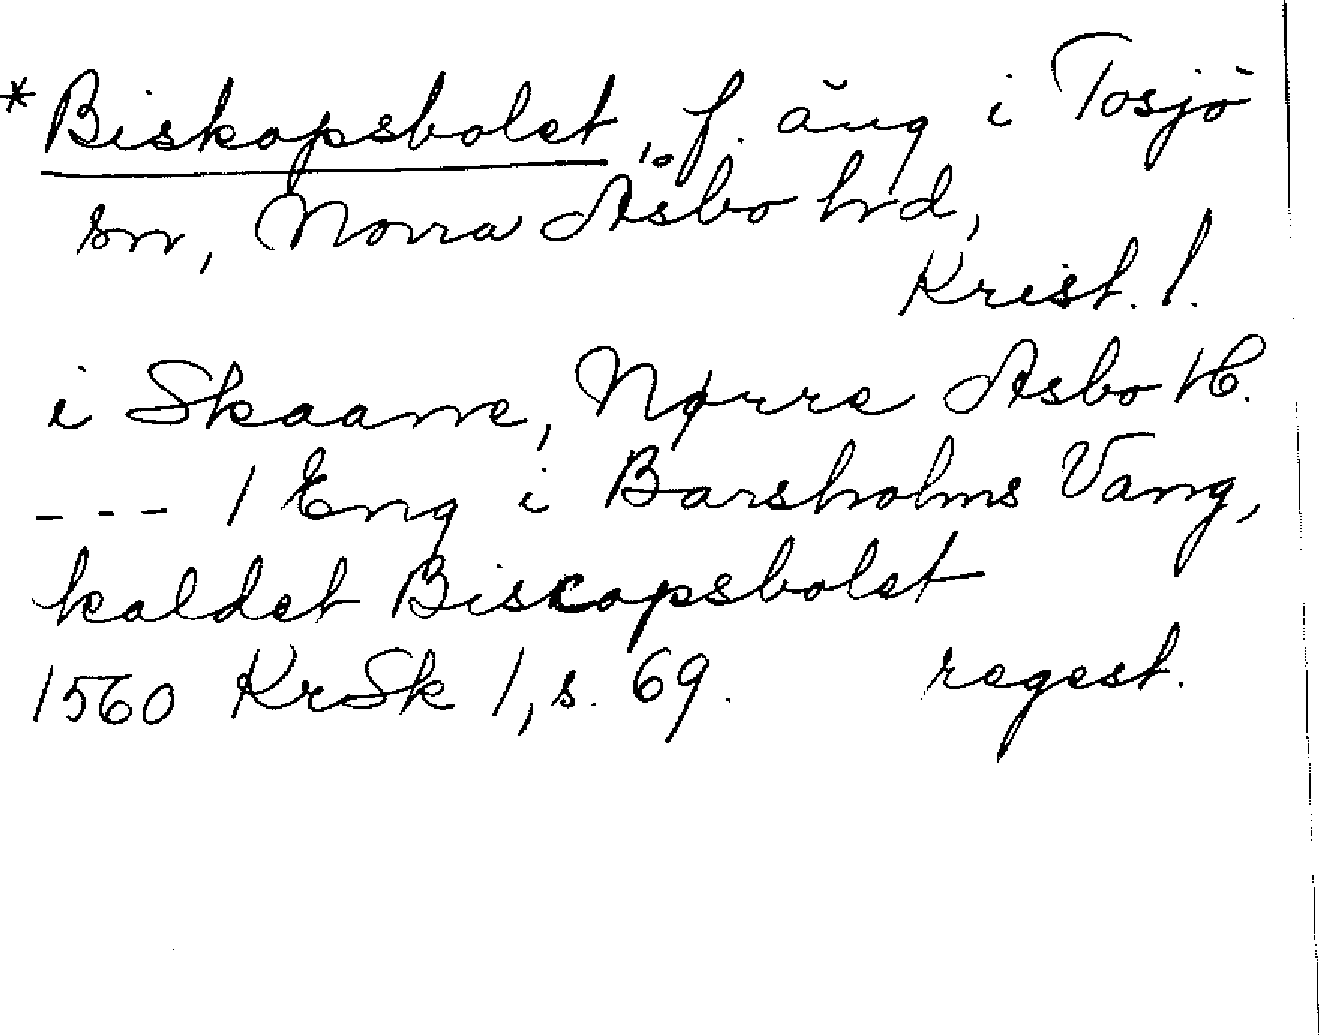 * Biskopsbolet, f. äng i Tosjö
sn, Norra Åsbo hrd,
Krist. l.
i Skaane, Nørre Asbo H.
--- 1 Eng i Barsholms Vang,
kaldet Biscopsbolet
1560 KrSk 1, s. 69. regest.